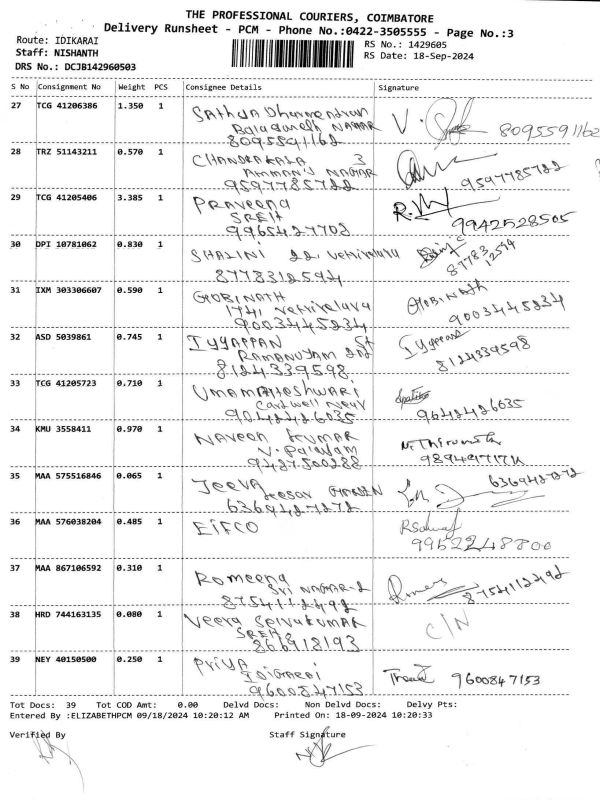 THE PROFESSIONAL COURIERS, COIMBATORE
Delivery Runsheet - PCM - Phone No.:0422-3505555 - Page No.:3
Route: IDIKARAI
RS No.: 1429605
Staff: NISHANTH
RS Date: 18-Sep-2024
DRS No.: DCJB142960503
S No Consignment No Weight PCS Consignee Details Signature
27 TCG 41206386 1.350 1 Sathya Dharmendran V.
NAGAR
8095591162 8095591162
28 TRZ 51143211 0.570 1 CHANDRAKALA 3
AMMAN'S NAGAR
9597785722 9597785722
29 TCG 41205406 3.385 1 PRAVEENA
SREH
9965427702 9942528505
30 DPI 10781062 0.830 1 SHALINI 22, Vetrivelava
8778312594 87783 12594
31 IXM 303306607 0.590 1 GOBINATH GOBINATH
1741 Vetrivelava
9003445234 9003445234
32 ASD 5039861 0.745 1 IYYAPPAN St Iyyappan
RAMANUJAM 2nd
8124339598 8124339598
33 TCG 41205723 0.710 1 UMAMAHESHWARI
Near
9042426035 9642426035
34 KMU 3558411 0.970 1 NAVEEN KUMAR
V. Palayam
9437500288
35 MAA 575516846 0.065 1 JEEVA
GARDEN
6369427272 6369427272
36 MAA 576038204 0.485 1 EIFCO
9962248800
37 MAA 867106592 0.310 1 Romeena
Sri NAGAR-2
8754112492 8754112492
38 HRD 744163135 0.080 1 Veera SelvaKUMAR C/N
SREHS
866918193
39 NEY 40150500 0.250 1 PriYA
Idigarai
9600847153 9600847153
Tot Docs: 39 Tot COD Amt: 0.00 Delvd Docs: Non Delvd Docs: Delvy Pts:
Entered By :ELIZABETHPCM 09/18/2024 10:20:12 AM Printed On: 18-09-2024 10:20:33
Verified By Staff Signature